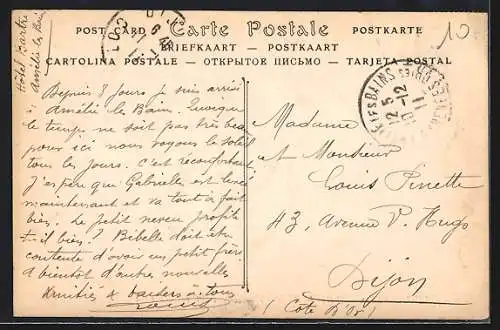 Hôtel Martri
Amélie les Bains
POST CARD Carte Postale POSTKARTE
BRIEFKAART — POSTKAART
CARTOLINA POSTALE — ОТКРЫТОЕ ПИСЬМО — TARJETA POSTAL
10
12 5
10-12
11
Depuis 8 jours je suis arrivé
à Amélie les Bains. Quoique
le temps ne soit pas très beau
pour ici nous voyons le soleil
tous les jours. C'est reconfortant
J'espère que Gabrielle est bien
maintenant et va tout à fait
bien. Le petit neveu profite
t-il bien? Bibelle doit etre
contente d'avoir un petit frère
à bientot d'autres nouvelles
Amitiés à tous
Louis
Madame
et Monsieur
Louis Penette
43, Avenue V. Hugo
Dijon
(Côte d'Or)